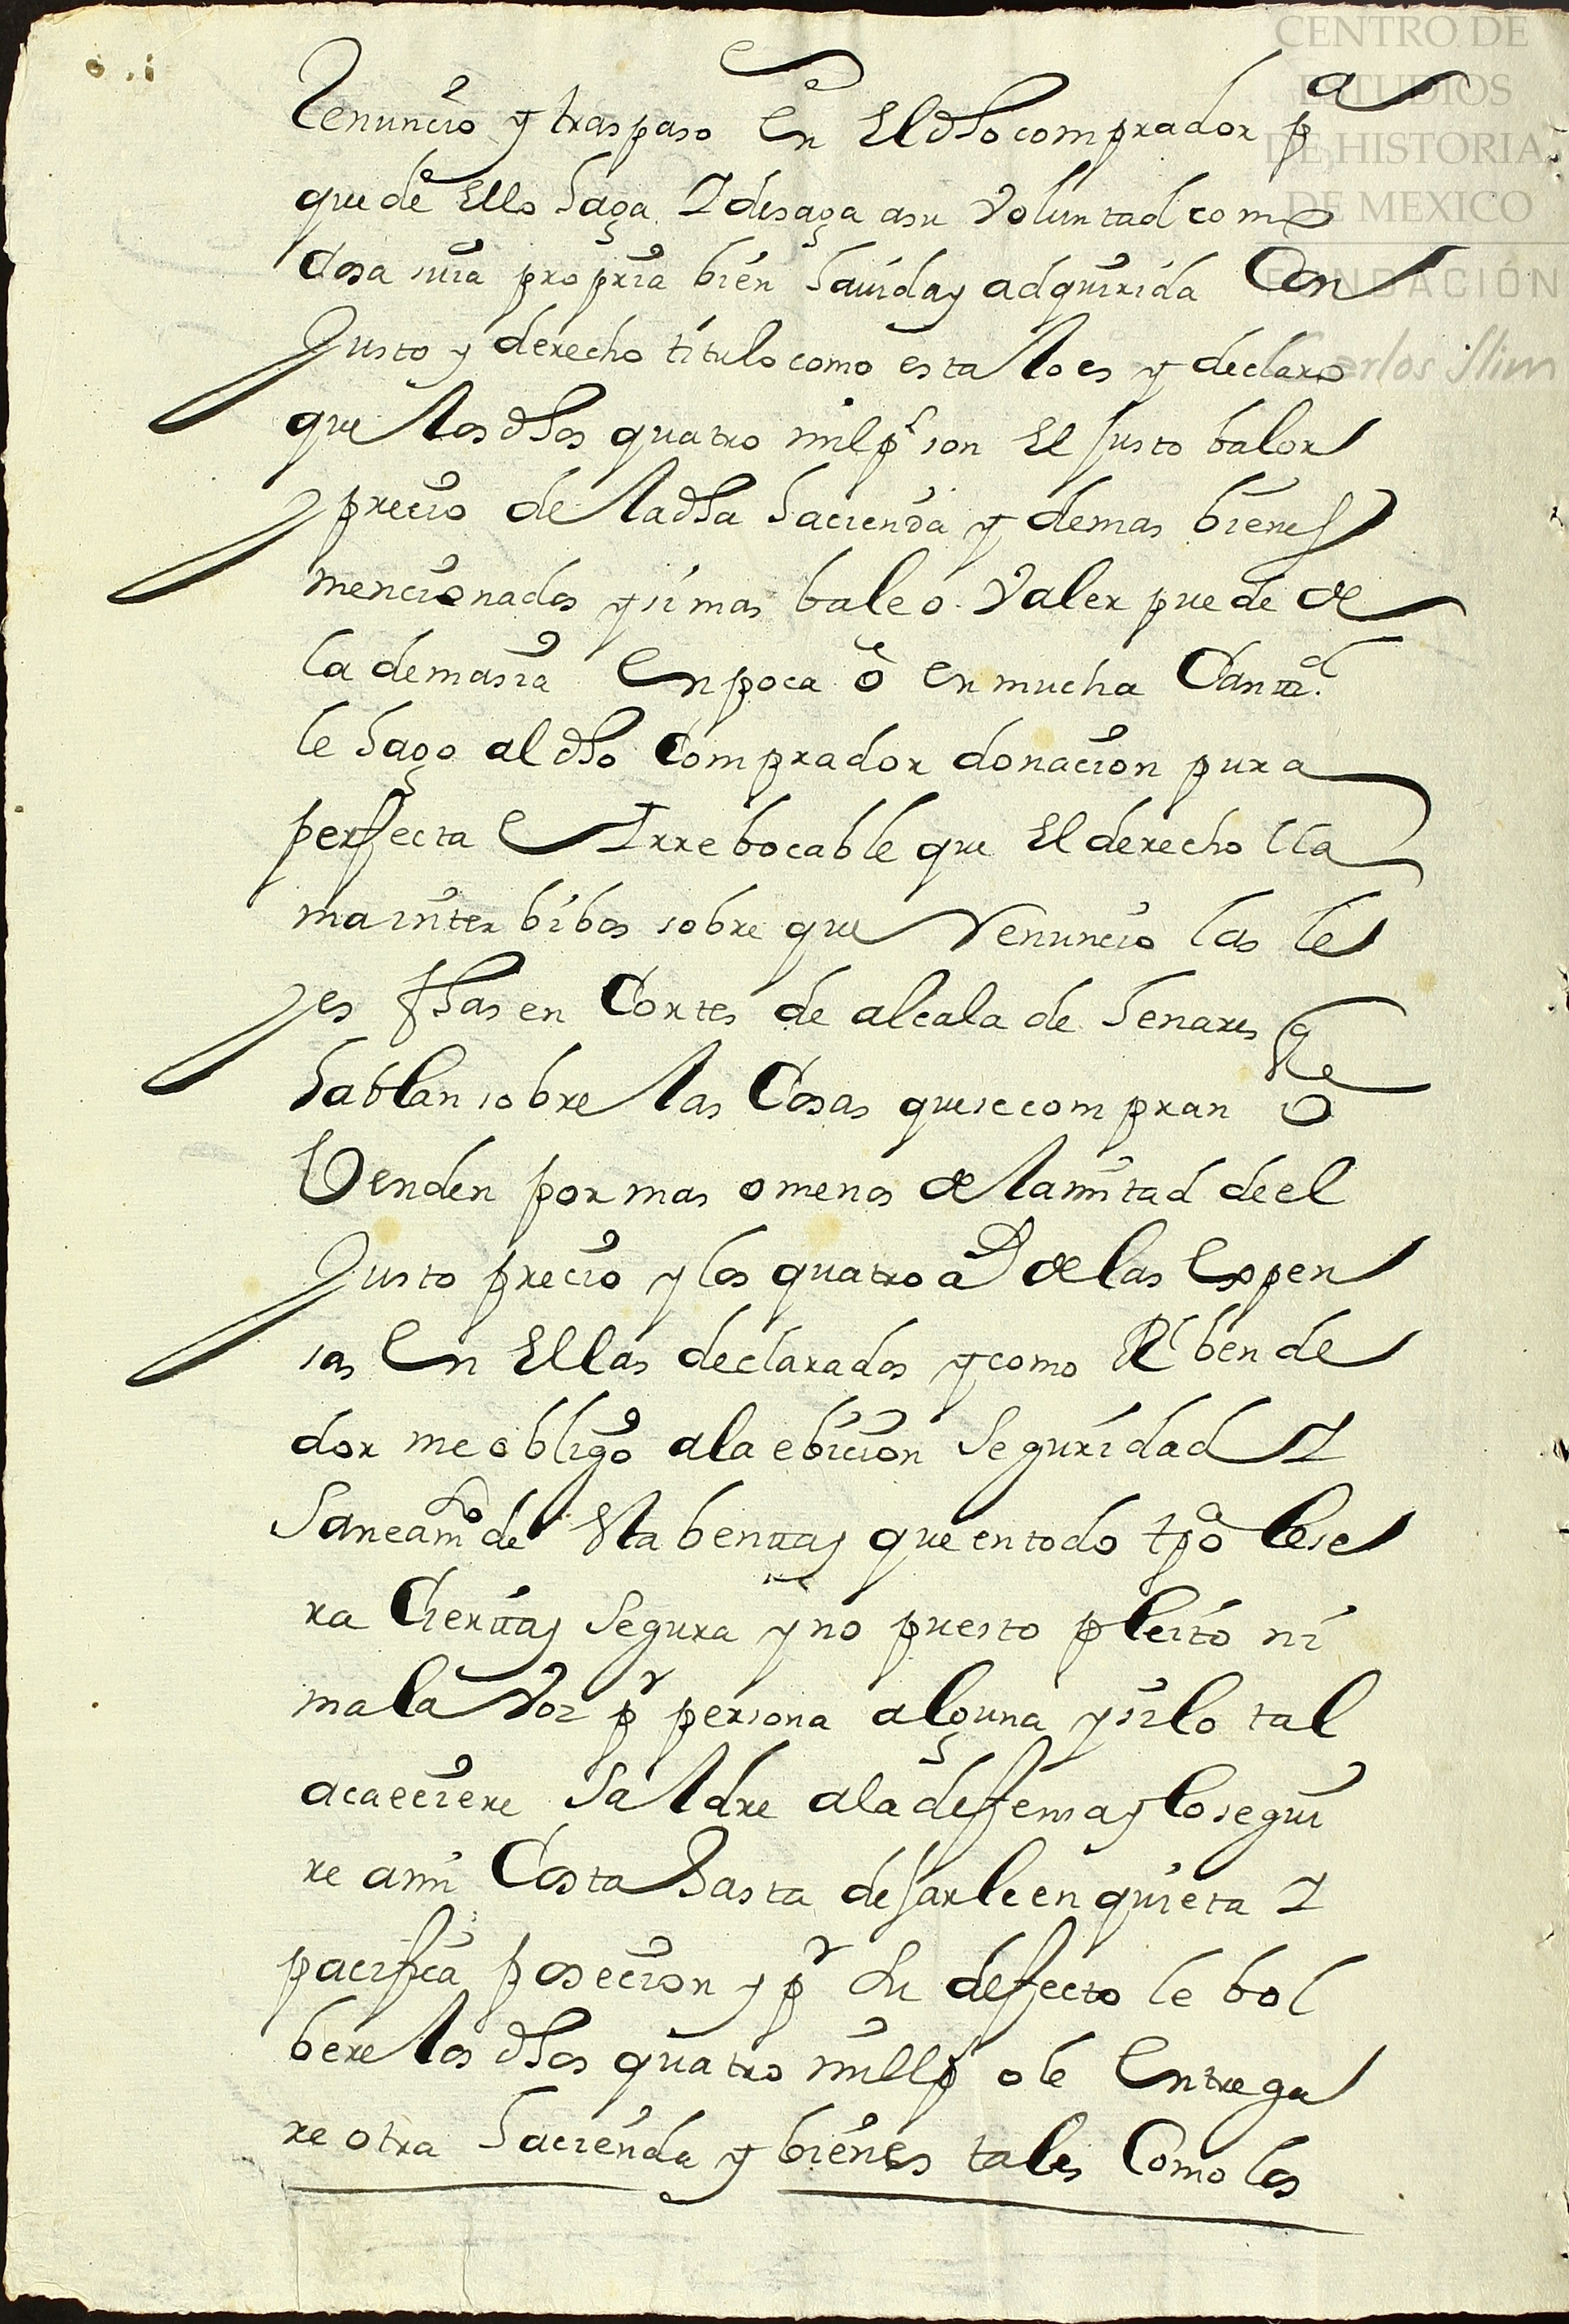 CENTRO DE
ESTUDIOS
DE HISTORIA
DE MEXICO
FUNDACIÓN
Carlos Slim
Renuncio y traspaso en El dho comprador pa
que de Ello haga I desaga asu Voluntad como
Cosa suia propria bien hauida y adquirida Con
Justo y derecho titulo como esta lo es y declaro
que los dhos quatro mil ps son El justo balor
y precio de la dha hacienda y demas bienes
mencionados y si mas bale o Valer puede de
la demasia En poca ô en mucha Cantd
le hago al dho Comprador donacion pura
perfecta e Irrebocable que El derecho lla
ma inter bibos sobre que Renuncio las le
yes fhas en Cortes de alcala de henares qe
hablan sobre las Cosas que se compran o
Venden por mas o menos de la mitad de el
Justo precio y los quatro as de las Espen
sas En Ellas declarados y como Rl bende
dor me obligo a la ebicion Seguridad I
Saneamto de Esta benta y que en todo tpo lese
ra Cierta y Segura y no puesto pleito ni
mala Voz pr persona alguna y si lo tal
acaeciere Saldre a la defensa y lo segui
re a mi Costa hasta dejarle en quieta I
pacifica poseción y pr Su defecto le bol
bere los dhos quatro mill ps o le Entrega
re otra hacienda y bienes tales Como los